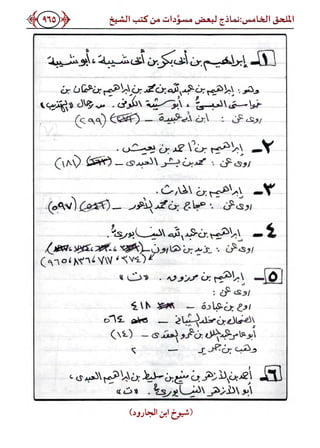 الملحق الخامس: نماذج لبعض مسوَّدات من كتب الشيخ
٩٦٥
١- إبراهيم بن أبي بكر بن أبي شيبة، أبو شيبة
وهو: إبراهيم بن عبد الله بن محمد بن إبراهيم بن عثمان بن
خواستي العبسي، أبو شيبة الكوفي. من رجال «التهذيب»
روى عن: ابن أبي عبيدة - (٢٩٩)
٢- إبراهيم بن أحمد بن يعيش.
روى عن: محمد بن بشر العبدي - (١٨١)
٣- إبراهيم بن الحارث.
روى عن: حجاج بن محمد الأعور - (٥٩٧)
٤- إبراهيم بن عبد الله النيسابوري.
روى عن: يزيد بن هارون -
(٩٦٥،٨٣٦،٧١٧،٣٧٤)
٥- إبراهيم بن مرزوق. «ت»
روى عن:
روح بن عبادة - ٤١٨
الضحاك بن مخلد الشيباني - ٥٦٤
أبو عامر عبد الملك بن عمرو العقدي - (١٤)
وهب بن جرير - ٢
٦- أحمد بن الأزهر بن منيع بن سليط بن إبراهيم العبدي،
أبو الأزهر النيسابوري. «ت»
(شيوخ ابن الجارود)